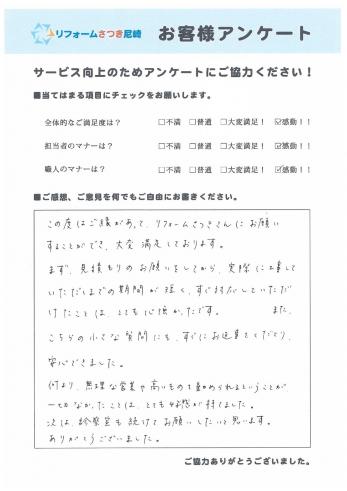 リフォームさつき尼崎 お客様アンケート
サービス向上のためアンケートにご協力ください！
■当てはまる項目にチェックをお願いします。
全体的なご満足度は？ □不満 □普通 □大変満足！ ☑感動！！
担当者のマナーは？ □不満 □普通 □大変満足！ ☑感動！！
職人のマナーは？ □不満 □普通 □大変満足！ ☑感動！！
■ご感想、ご意見を何でもご自由にお書きください。
この度はご縁があって、リフォームさつきさんにお願い
することができ、大変満足しております。
まず、見積もりのお願いをしてから、実際に工事して
いただくまでの期間が短く、すぐ対応していただ
けたことは、とても心強かったです。 また、
こちらの小さな質問にも、すぐにお返事してくださり、
安心できました。
何より、無理な営業や高いものを勧められるということが
一切なかったことは、とても好感が持てました。
次は、給湯器も続けてお願いしたいと思います。
ありがとうございました。
ご協力ありがとうございました。